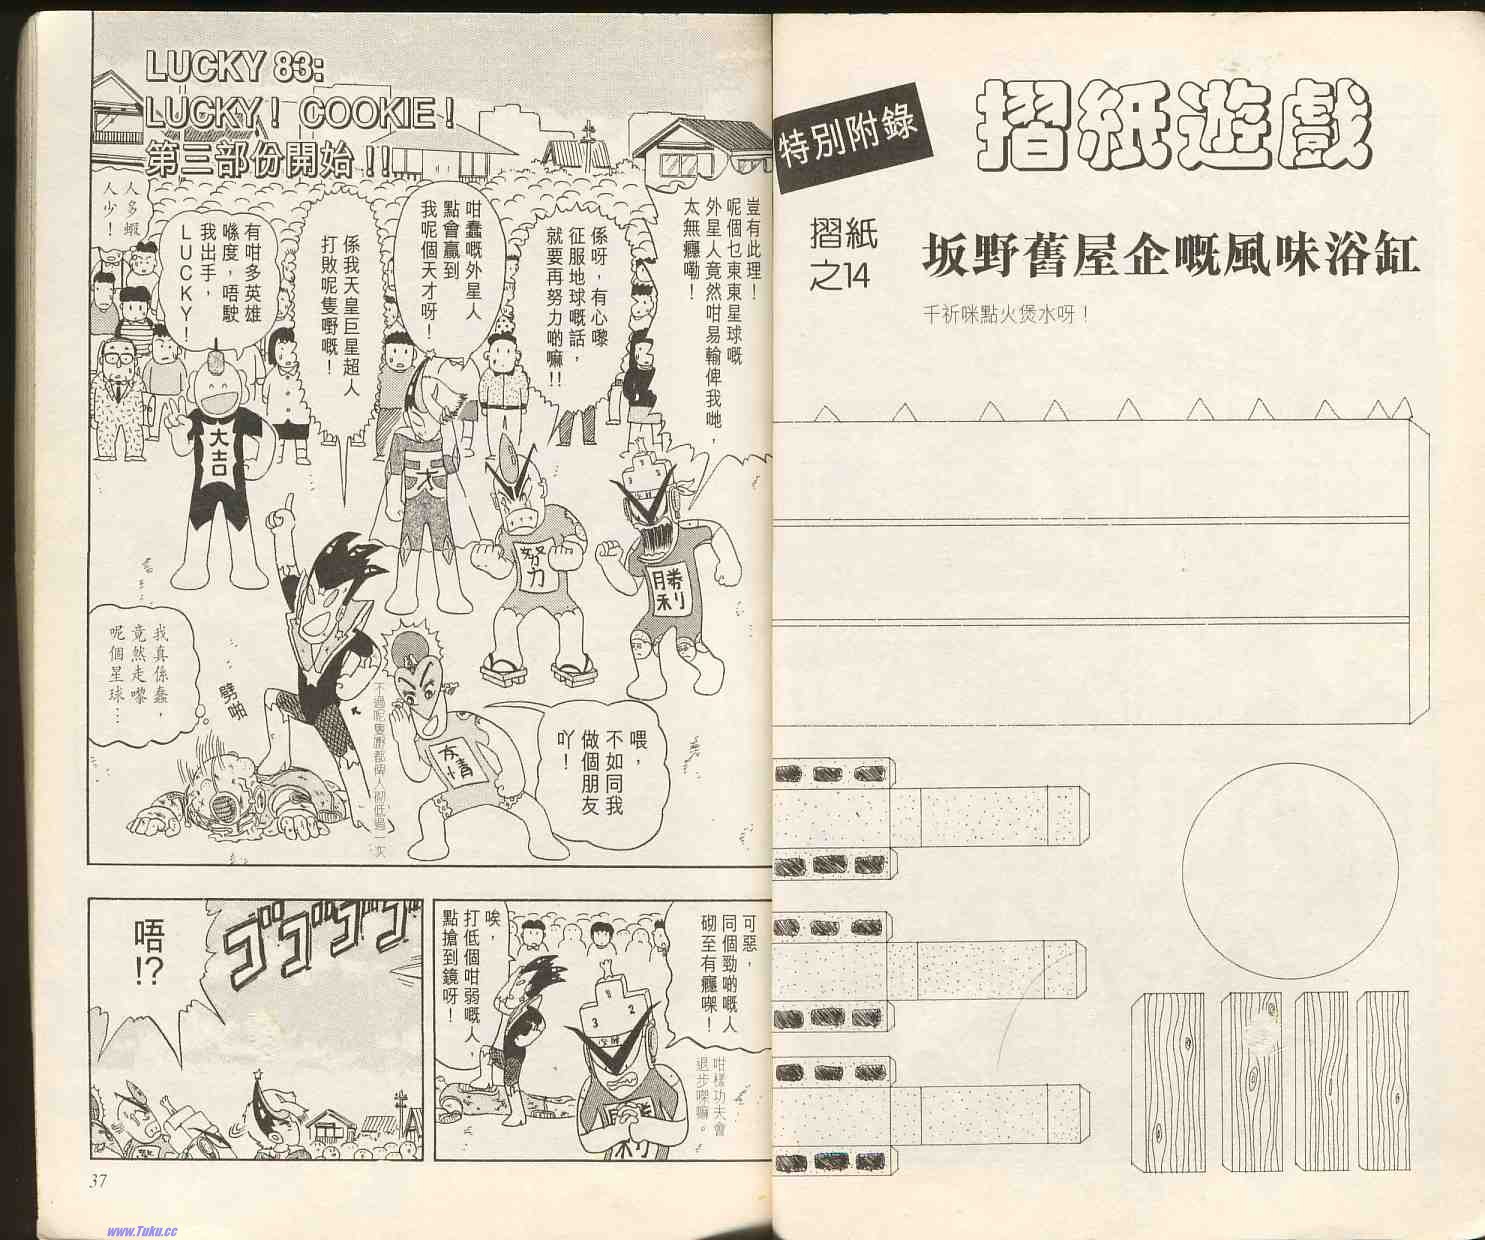 特別附錄
摺紙遊戲
摺紙
之14
坂野舊屋企嘅風味浴缸
千祈咪點火煲水呀！
LUCKY 83:
LUCKY! COOKIE!
第三部份開始!!
豈有此理！
呢個乜東東星球嘅
外星人竟然咁易輸俾我哋，
太無癮嘞！
係呀，有心嚟
征服地球嘅話，
就要再努力啲嘛!!
咁蠢嘅外星人
點會贏到
我呢個天才呀！
係我天皇巨星超人
打敗呢隻嘢嘅！
有咁多英雄
喺度，唔駛
我出手，
LUCKY！
人多蝦
人少！
大吉
天
努力
勝利
友情
喂，
不如同我
做個朋友
吖！
不過呢隻嘢都俾人
低
一次
我真係蠢，
竟然走嚟
呢個星球…
劈啪
可惡，
同個勁啲嘅人
砌至有癮㗎！
咁樣功夫會
退步㗎嘛。
唉，
打低個咁弱嘅人，
點搶到鏡呀！
1
3 2
必勝
勝利
ゴゴゴゴ
唔!?
37
www.Tuku.cc